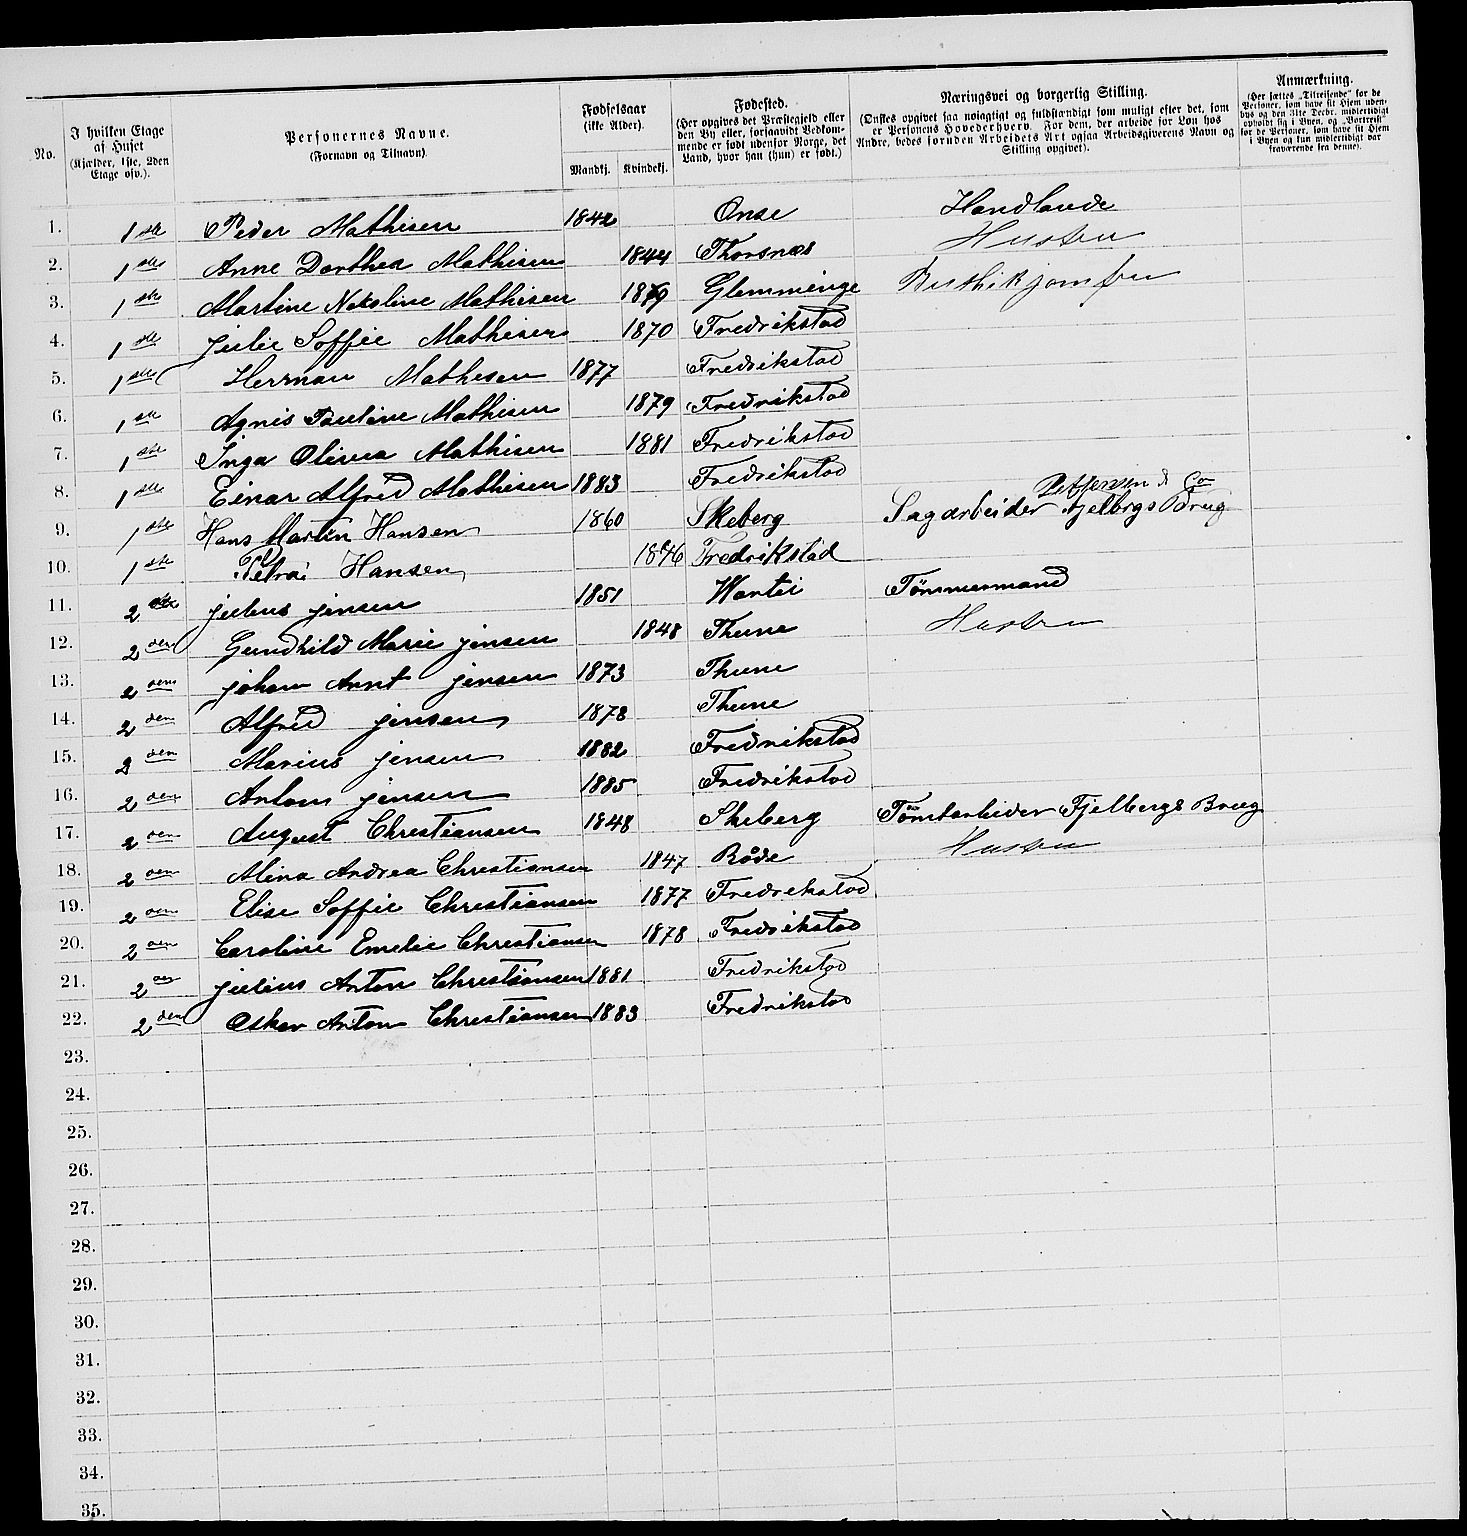 No. | I hvilken Etage af Huset (Kjælder, 1ste, 2den Etage osv.). | Personernes Navne. (Fornavn og Tilnavn). | Fødselsaar (ikke Alder). Mandkj. | Kvindekj. | Fødested. (Her opgives det Præstegjeld eller den By eller, forsaavidt Vedkommende er født udenfor Norge, det Land, hvor han (hun) er født.) | Næringsvei og borgerlig Stilling. (Ønskes opgivet saa nøiagtigt og fuldstændigt som muligt efter det, som er Personens Hovederhverv. For dem, der arbeide for Løn hos Andre, bedes foruden Arbeidets Art ogsaa Arbeidsgiverens Navn og Stilling opgivet). | Anmærkning. (Her sættes „Tilreisende" for de Personer, som have sit Hjem udenbys og den 31te Decbr. midlertidigt opholdt sig i Byen, og „Bortreist" for de Personer, som have sit Hjem i Byen og kun midlertidigt var fraværende fra denne).
1. 1ste Peder Mathisen 1842 Onsø Handlande
2. 1ste Anne Dorthea Mathisen 1844 Thorsnæs Hustru
3. 1ste Martine Nekoline Mathisen Glemminge Buthikjomfru
4. 1ste Julie Soffie Mathisen 1870 Fredrikstad
5. 1ste Herman Mathesen 1877 Fredrikstad
6. 1ste Agnis Pauline Mathisen 1879 Fredrikstad
7. 1ste Inga Olivia Mathisen 1881 Fredrikstad
8. 1ste Einar Alfred Mathisen 1883 Fredrikstad
9. 1ste Hans Martin Hansen 1860 Skeberg Sagarbeider Petersen & Co Fjelbrgs Brug
10. 1ste Petra Hansen Fredrikstad
11. 2den Julius Jensen 1851 Wartei Tømmermand
12. 2den Gundhild Marie Jensen 1848 Thune Hustru
13. 2den Johan Arnt Jensen 1873 Thune
14. 2den Alfred Jensen 1878 Thune
15. 2den Marius Jensen 1882 Fredrikstad
16. 2den Anton Jensen 1885 Fredrikstad
17. 2den August Christiansen 1848 Skeberg Tømtarbeider Fjelbergs Brug
18. 2den Mina Andrea Christiansen 1847 Råde Hustru
19. 2den Elise Soffie Christiansen 1877 Fredrekstad
20. 2den Caroline Emelie Christiansen 1878 Fredrikstad
21. 2den Julius Anton Christiansen 1881 Fredrikstad
22. 2den Osker Anton Christiansen 1883 Fredrikstad
23.
24.
25.
26.
27.
28.
29.
30.
31.
32.
33.
34.
35.